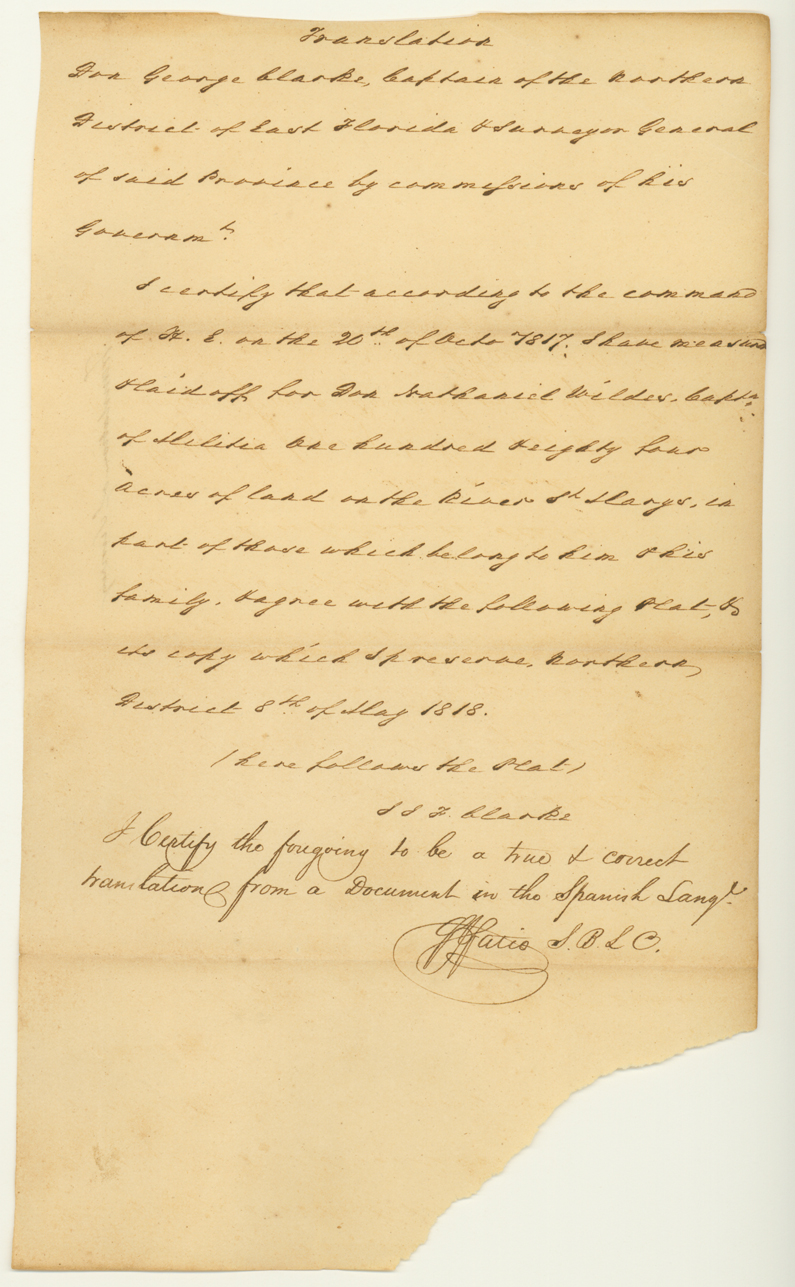 Translation
Don George Clarke, Captain of the Northern
District of East Florida & Surveyor General
of said Province by commissions of his
Governmt.
I certify that according to the command
of H. E. on the 20th of Octo 1817. I have measured
& laid off for Don Nathaniel Wildes, Captn.
of Militia One hundred & eighty four
Acres of land on the River St Marys, in
part of those which belong to him & his
family, & agree with the following Plat, &
its copy which I preserve, Northern
District 8th of May 1818.
(here follows the Plat)
Clarke
I Certify the foregoing to be a true & correct
translation from a Document in the Spanish Lange.
Fatio S. B. L. C.